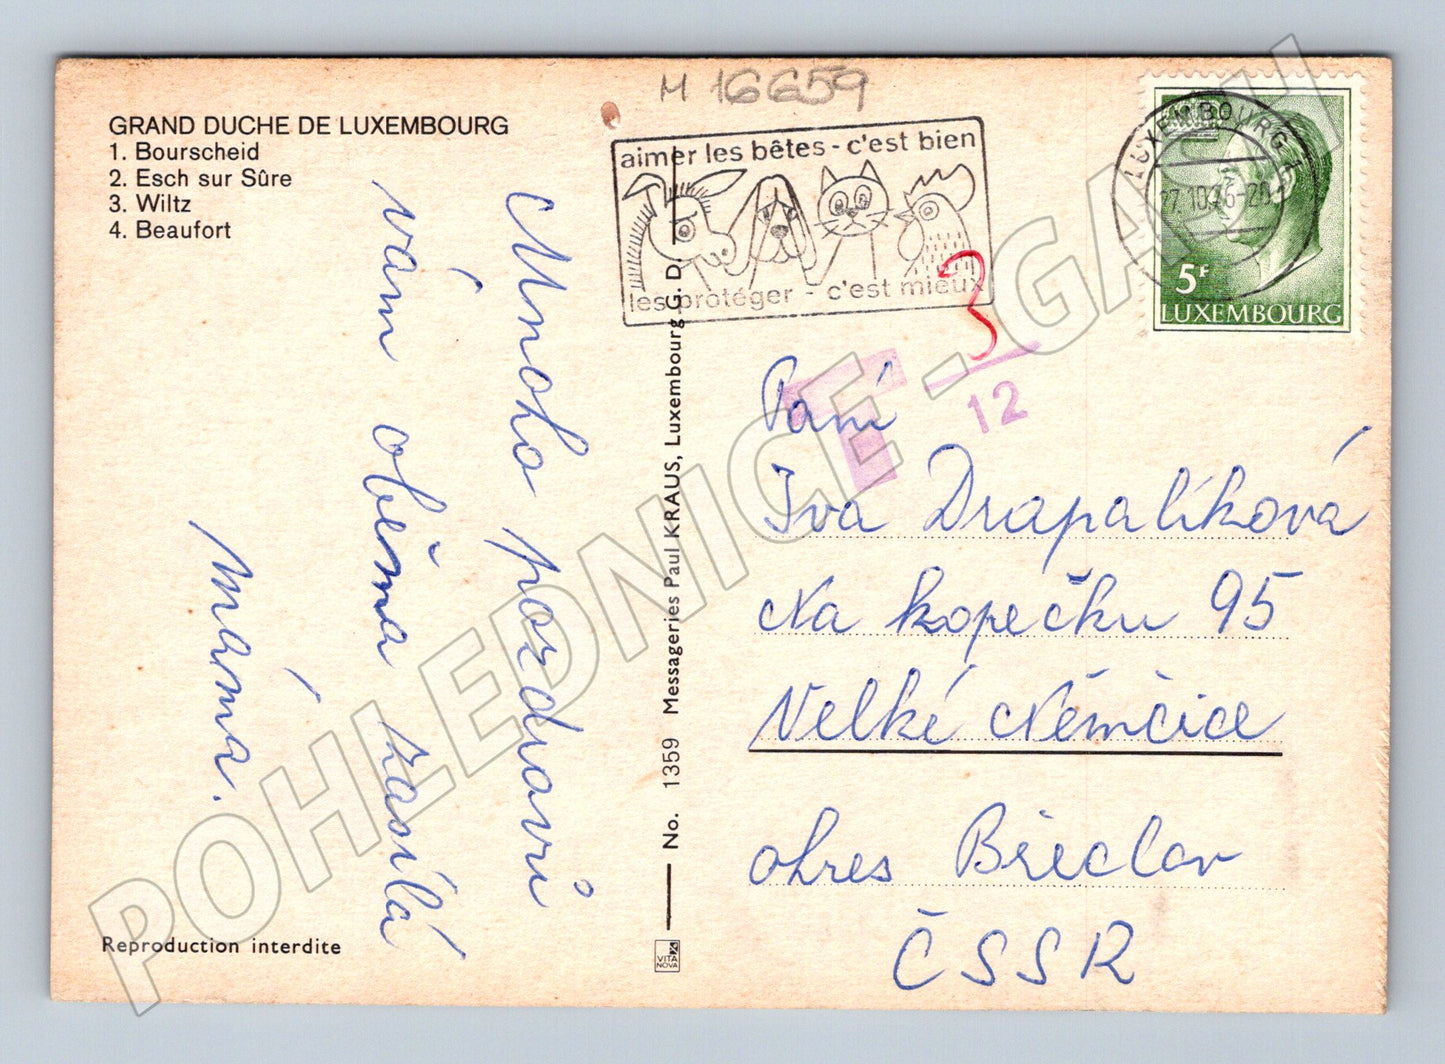 M 16659
GRAND DUCHE DE LUXEMBOURG
1. Bourscheid
2. Esch sur Sûre
3. Wiltz
4. Beaufort
aimer les bêtes - c'est bien
les protéger - c'est mieux
LUXEMBOURG 1
27.10.76-20
5F
LUXEMBOURG
T 3
12
Mnoho pozdravů
vám oběma zasílá
máma.
Paní
Iva Drapalíková
Na kopečku 95
Velké Němčice
okres Břeclav
ČSSR
No. 1359 Messageries Paul KRAUS, Luxembourg G. D.
Reproduction interdite
VITA
NOVA
POHLEDNICE - GASH